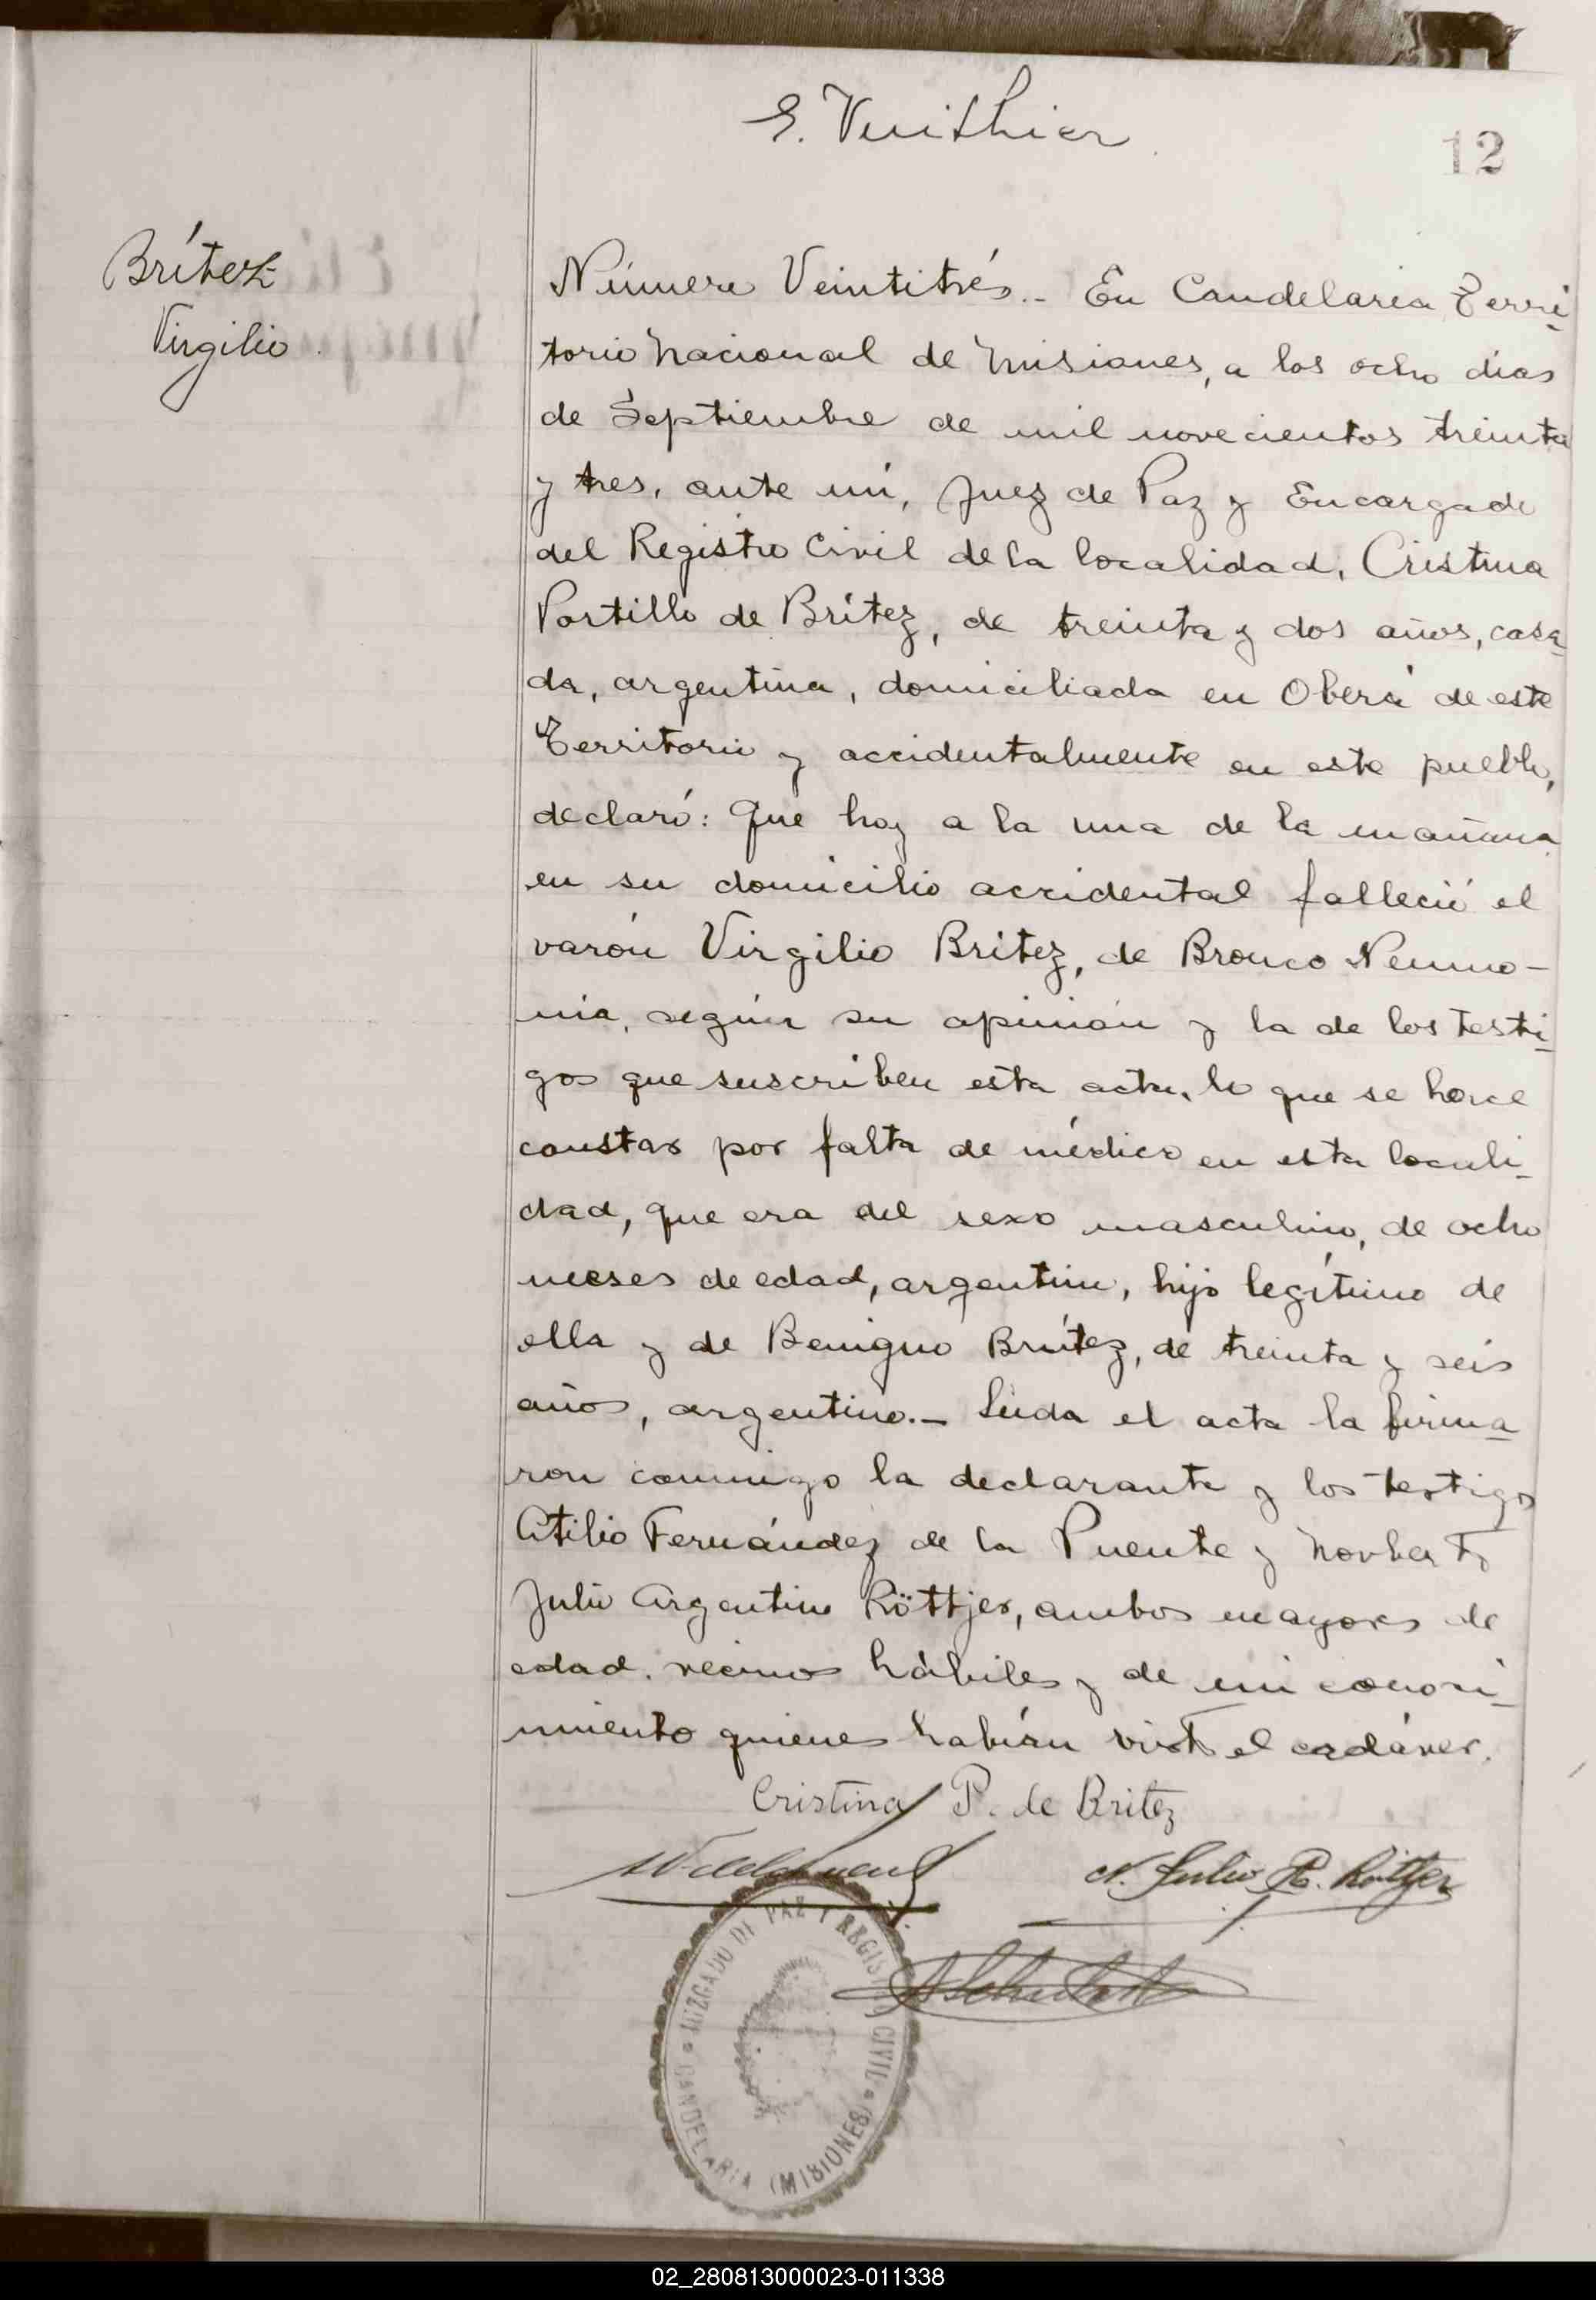 12
Brítez
Virgilio
Número Veintitrés.- En Candelaria Terri-
torio Nacional de Misiones, a los ocho días
de Septiembre de mil novecientos treinta
y tres, ante mí, Juez de Paz y Encargado
del Registro Civil de la localidad, Cristina
Portillo de Brítez, de treinta y dos años, casa-
da, argentina, domiciliada en Oberá de este
Territorio y accidentalmente en este pueblo,
declaró: Que hoy a la una de la mañana
en su domicilio accidental falleció el
varón Virgilio Brítez, de Bronco Neumo-
nía, según su opinión y la de los testi-
gos que suscriben esta acta, lo que se hace
constar por falta de médico en esta locali-
dad, que era del sexo masculino, de ocho
meses de edad, argentino, hijo legítimo de
ella y de Benigno Brítez, de treinta y seis
años, argentino.- Leída el acta la firma-
ron conmigo la declarante y los testigos
Atilio Fernández de la Puente y Norberto
Julio Argentino Röttjer, ambos mayores de
edad, vecinos hábiles y de mi conoci-
miento quienes habían visto el cadáver.
Cristina P. de Britez
N. Julio A. Röttjer
JUZGADO DE PAZ Y REGISTRO CIVIL
CANDELARIA (MISIONES)
02_280813000023-011338